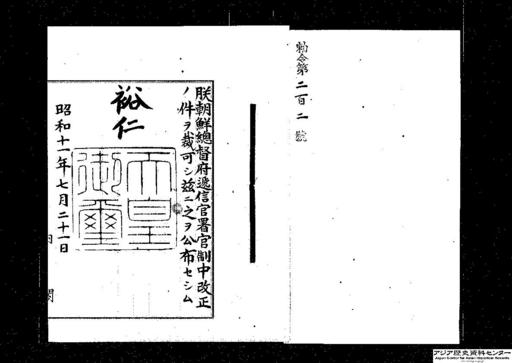 勅令第二百二號
朕朝鮮總督府遞信官署官制中改正
ノ件ヲ裁可シ茲ニ之ヲ公布セシム
裕仁
天皇
御璽
昭和十一年七月二十一日
内閣
アジア歴史資料センター
Japan Center for Asian Historical Records